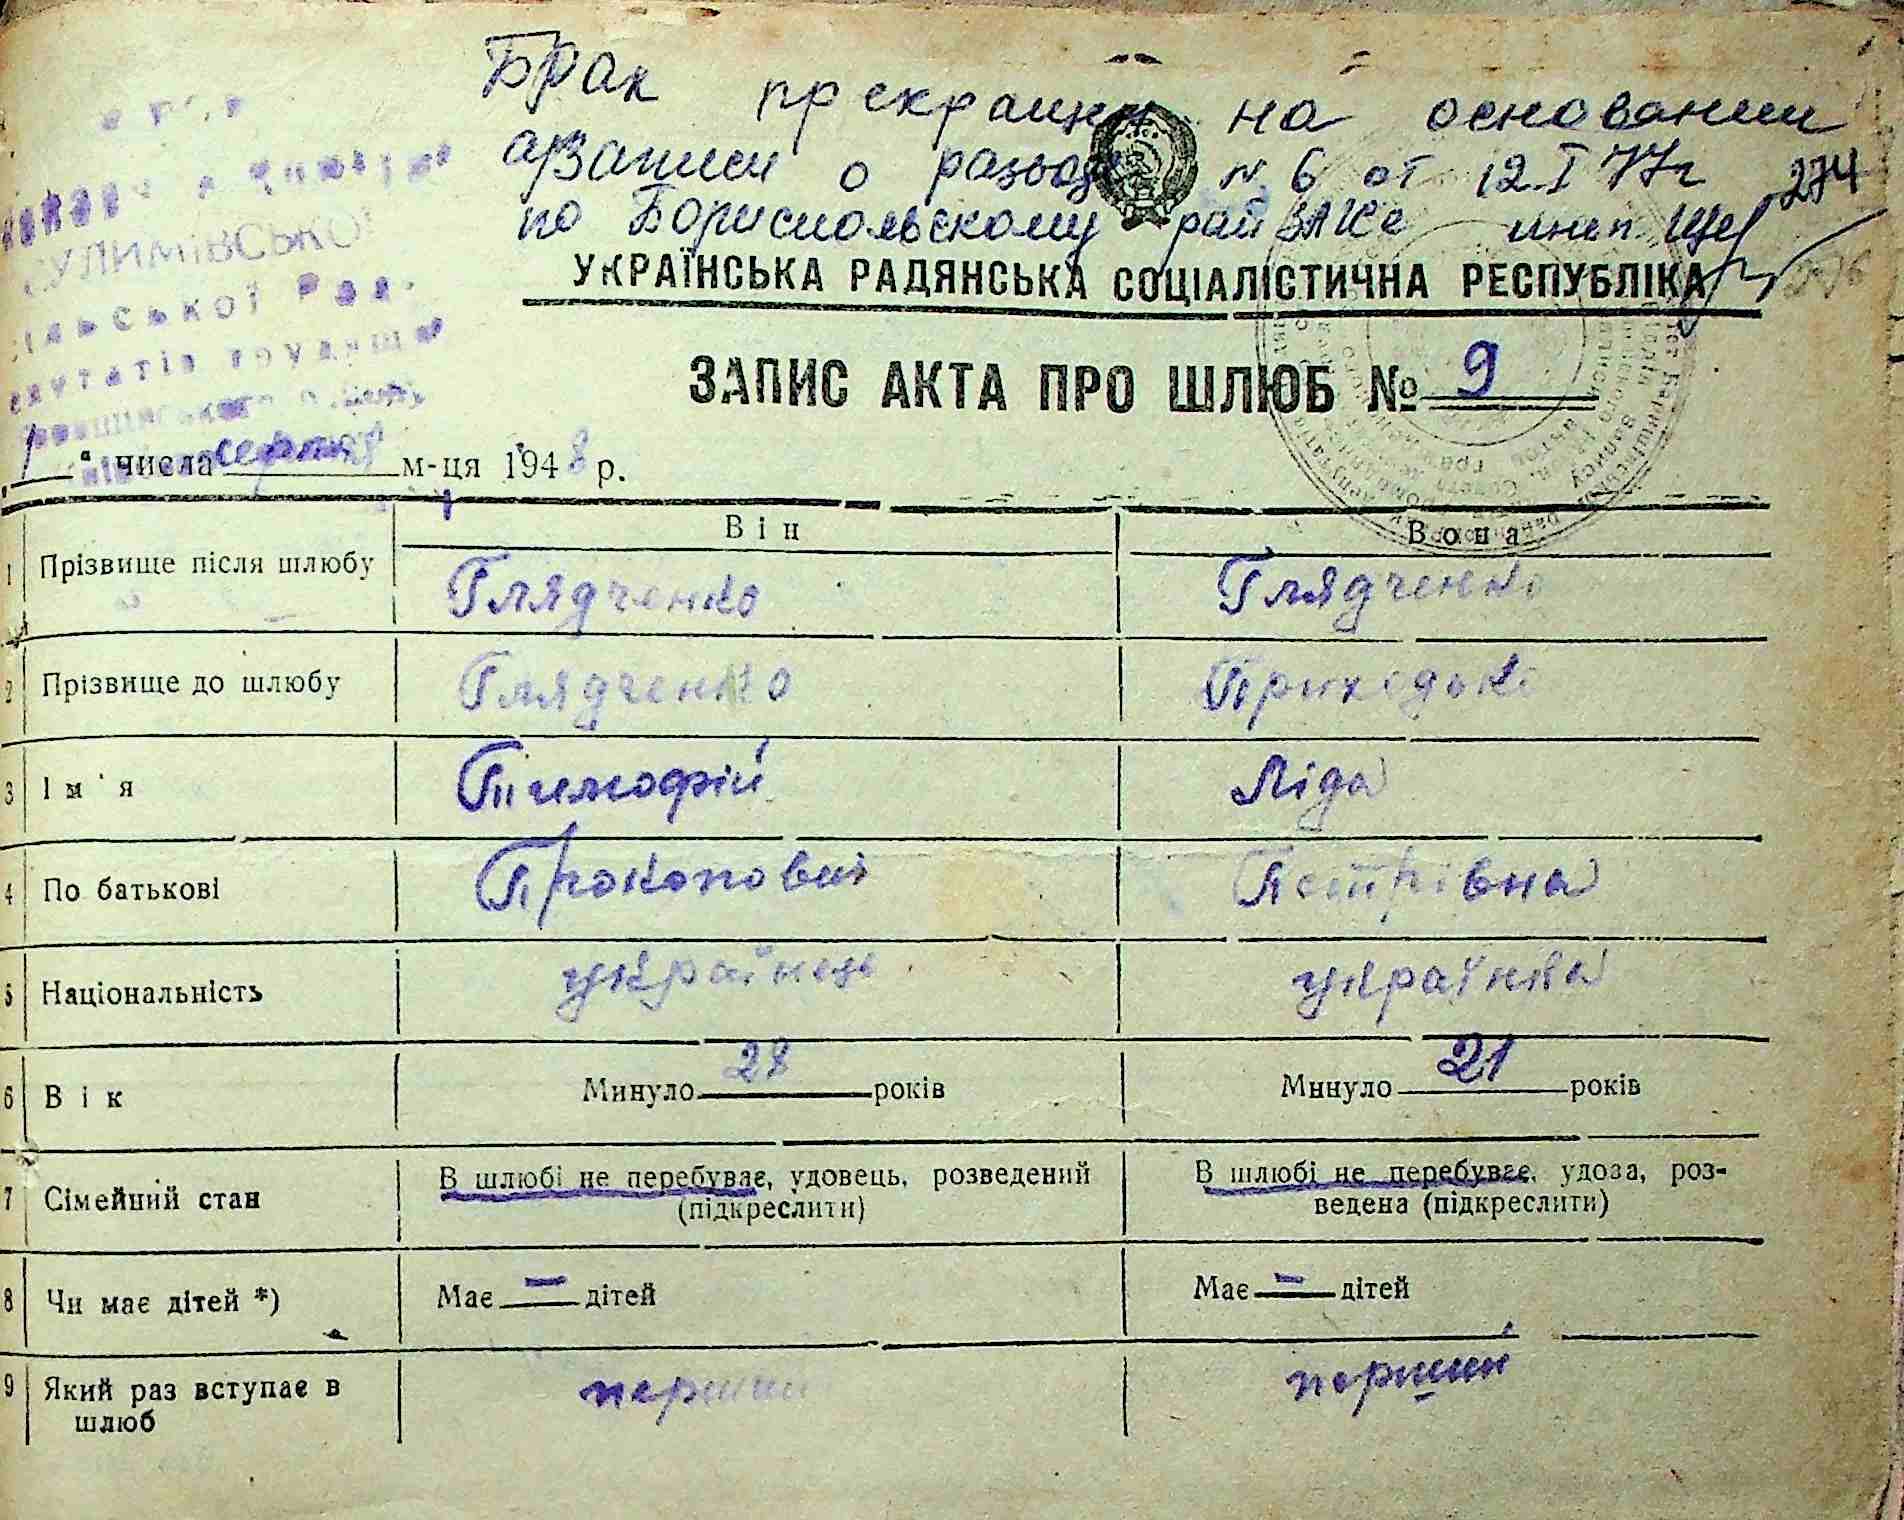 Брак прекращен на основании
а/записи о разводе N 6 от 12.I 77г 274
по Бориспольскому райЗАГСе инсп.
СУЛИМІВСЬКОЇ
УКРАЇНСЬКА РАДЯНСЬКА СОЦІАЛІСТИЧНА РЕСПУБЛІКА
ЗАПИС АКТА ПРО ШЛЮБ № 9
1 " числа серпня м-ця 1948 р.
Він Вона
1 Прізвище після шлюбу Глядченко Глядченко
2 Прізвище до шлюбу Глядченко Приходько
3 Ім'я Тимофій Ліда
4 По батькові Прокопович Петрівна
5 Національність українець українка
6 Вік Минуло 28 років Минуло 21 років
7 Сімейний стан В шлюбі не перебуває, удовець, розведений (підкреслити) В шлюбі не перебуває, удова, роз-
ведена (підкреслити)
8 Чи має дітей *) Має — дітей Має — дітей
9 Який раз вступає в перший перший
шлюб